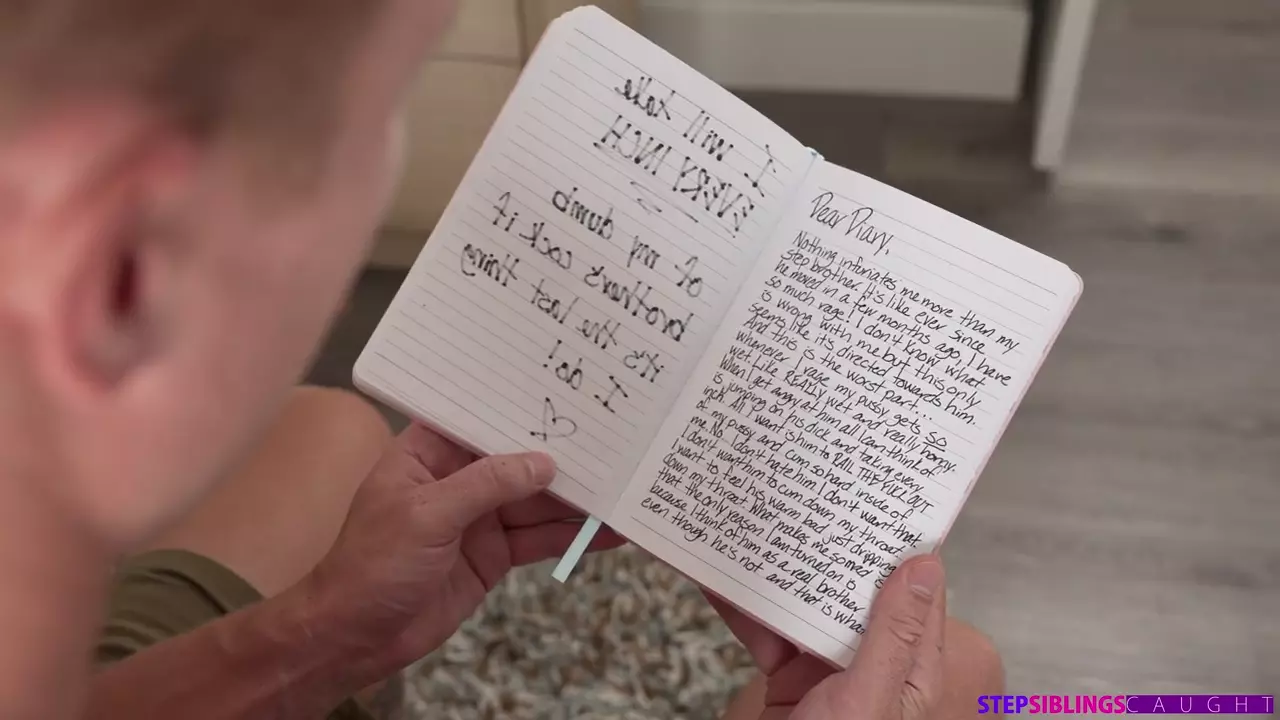 I will take
EVERY INCH
of my dumb
brother's cock if
it's the last thing
I do!
Dear Diary,
Nothing infuriates me more than my
step brother. It's like ever since
he moved in a few months ago, I have
so much rage! I don't know what
is wrong with me but this only
seems like it's directed towards him.
And this is the worst part...
whenever I rage my pussy gets so
wet. Like REALLY wet and really horny.
When I get angry at him all I can think of
is jumping on his dick and taking every
inch. All I want is him to RAIL THE FUCK OUT
of my pussy and cum so hard inside of
me. No. I don't hate him I don't want that
I don't want him to cum down my throat
I want to feel his warm load just dripping
down my throat. What makes me so mad is
that the only reason I am turned on is
because I think of him as a real brother
even though he's not and that is
STEPSIBLINGSCAUGHT